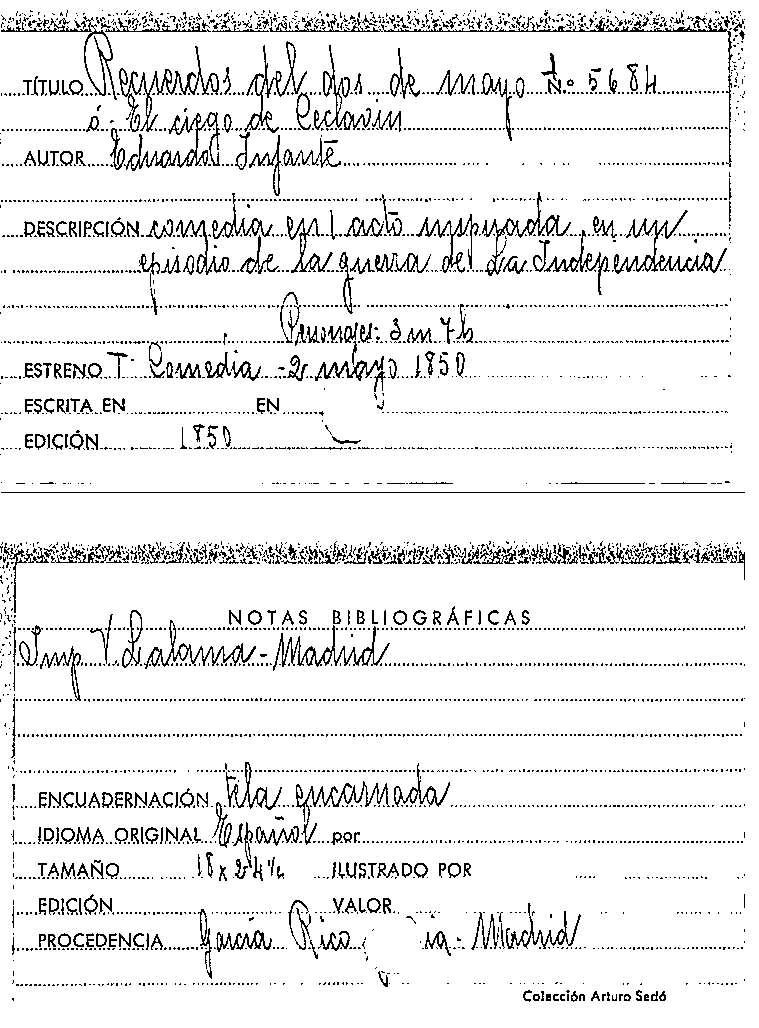 TÍTULO Recuerdos del dos de mayo N.º 5684
ó El ciego de Ceclavin
AUTOR Eduardo Infante
DESCRIPCIÓN comedia en 1 acto inspirada en un
episodio de la guerra de La Independencia
Personajes: 3 m 7 h
ESTRENO T. Comedia - 2 mayo 1850
ESCRITA EN EN
EDICIÓN 1850
NOTAS BIBLIOGRÁFICAS
Imp V. Lalama - Madrid
ENCUADERNACIÓN tela encarnada
IDIOMA ORIGINAL Español por
TAMAÑO 18 x ILUSTRADO POR
EDICIÓN VALOR
PROCEDENCIA García Rico - Madrid
Colección Arturo Sedó